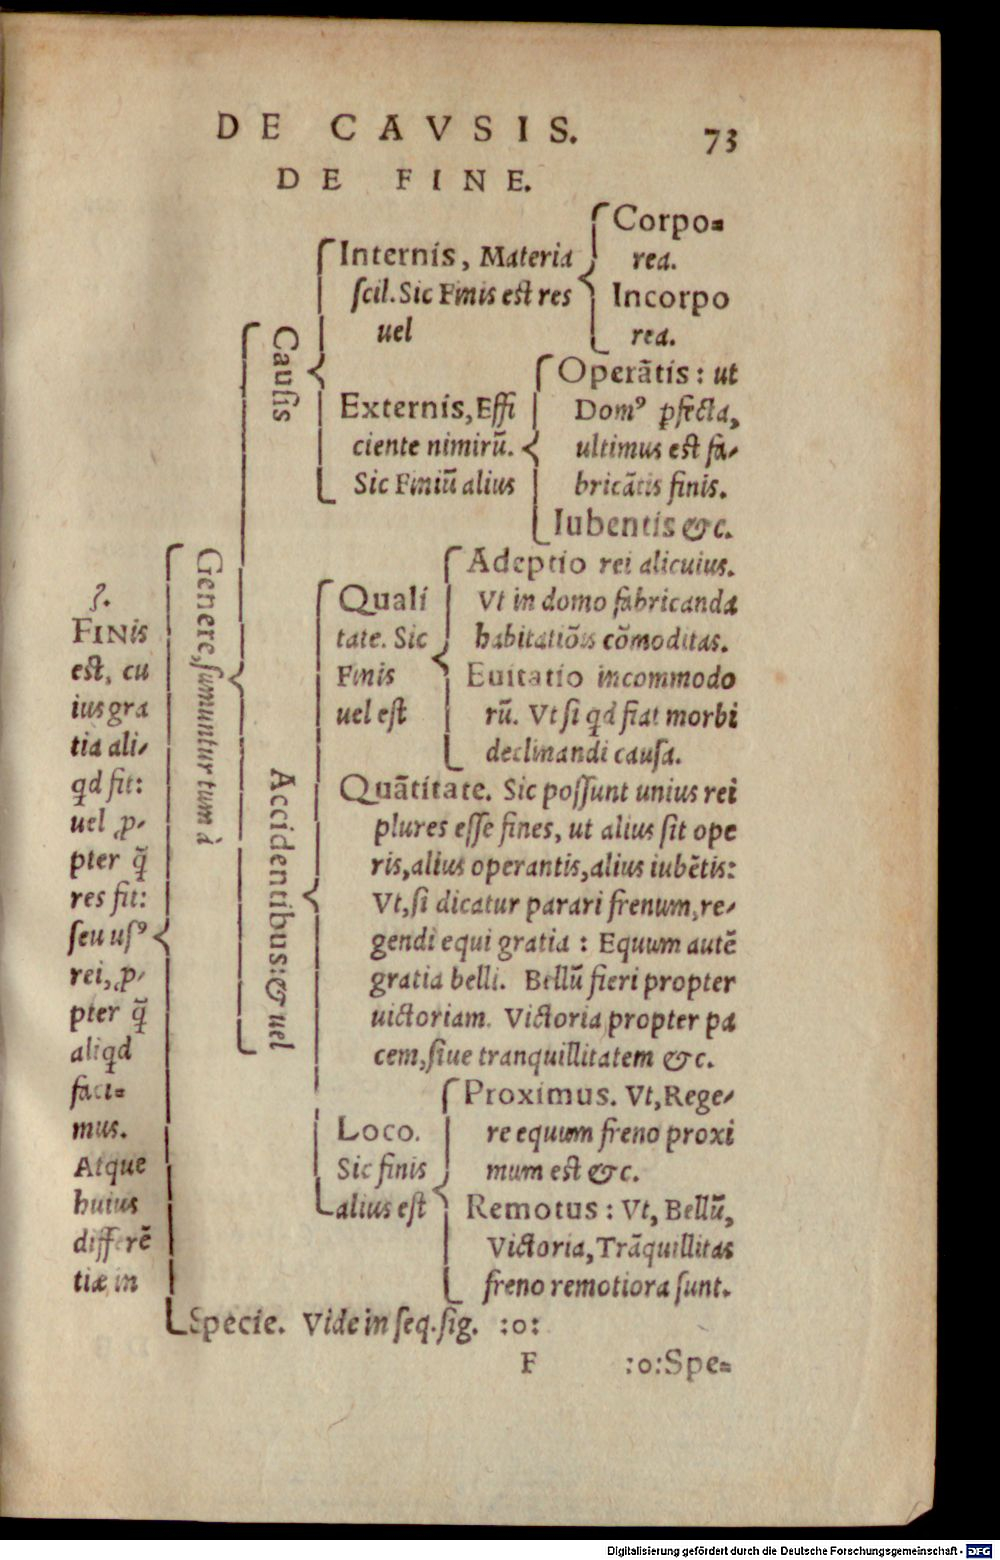 DE CAVSIS. 73
DE FINE.
ʒ.
FINis
est, cu
ius gra
tia ali-
qd fit:
uel, ꝓ-
pter q̃
res fit:
seu usꝰ
rei, ꝓ-
pter q̃
aliqd
faci=
mus.
Atque
huius
differẽ
tiæ in
Genere, sumuntur tum à
Causis
Internis, Materia
scil. Sic Finis est res
uel
Corpo=
rea.
Incorpo
rea.
Externis, Effi
ciente nimirũ.
Sic Finiũ alius
Operãtis: ut
Domꝰ ꝑfecta,
ultimus est fa-
bricãtis finis.
Iubentis &c.
Accidentibus: & uel
Quali
tate. Sic
Finis
uel est
Adeptio rei alicuius.
Vt in domo fabricanda
habitatiõis cõmoditas.
Euitatio incommodo
rũ. Vt si qd fiat morbi
declinandi causa.
Quãtitate. Sic possunt unius rei
plures esse fines, ut alius sit ope
ris, alius operantis, alius iubẽtis:
Vt, si dicatur parari frenum, re-
gendi equi gratia: Equum autẽ
gratia belli. Bellũ fieri propter
uictoriam. Victoria propter pa
cem, siue tranquillitatem &c.
Loco.
Sic finis
alius est
Proximus. Vt, Rege-
re equum freno proxi
mum est &c.
Remotus: Vt, Bellũ,
Victoria, Trãquillitas
freno remotiora sunt.
Specie. Vide in seq. sig. :o:
F :o:Spe=
Digitalisierung gefördert durch die Deutsche Forschungsgemeinschaft - DFG